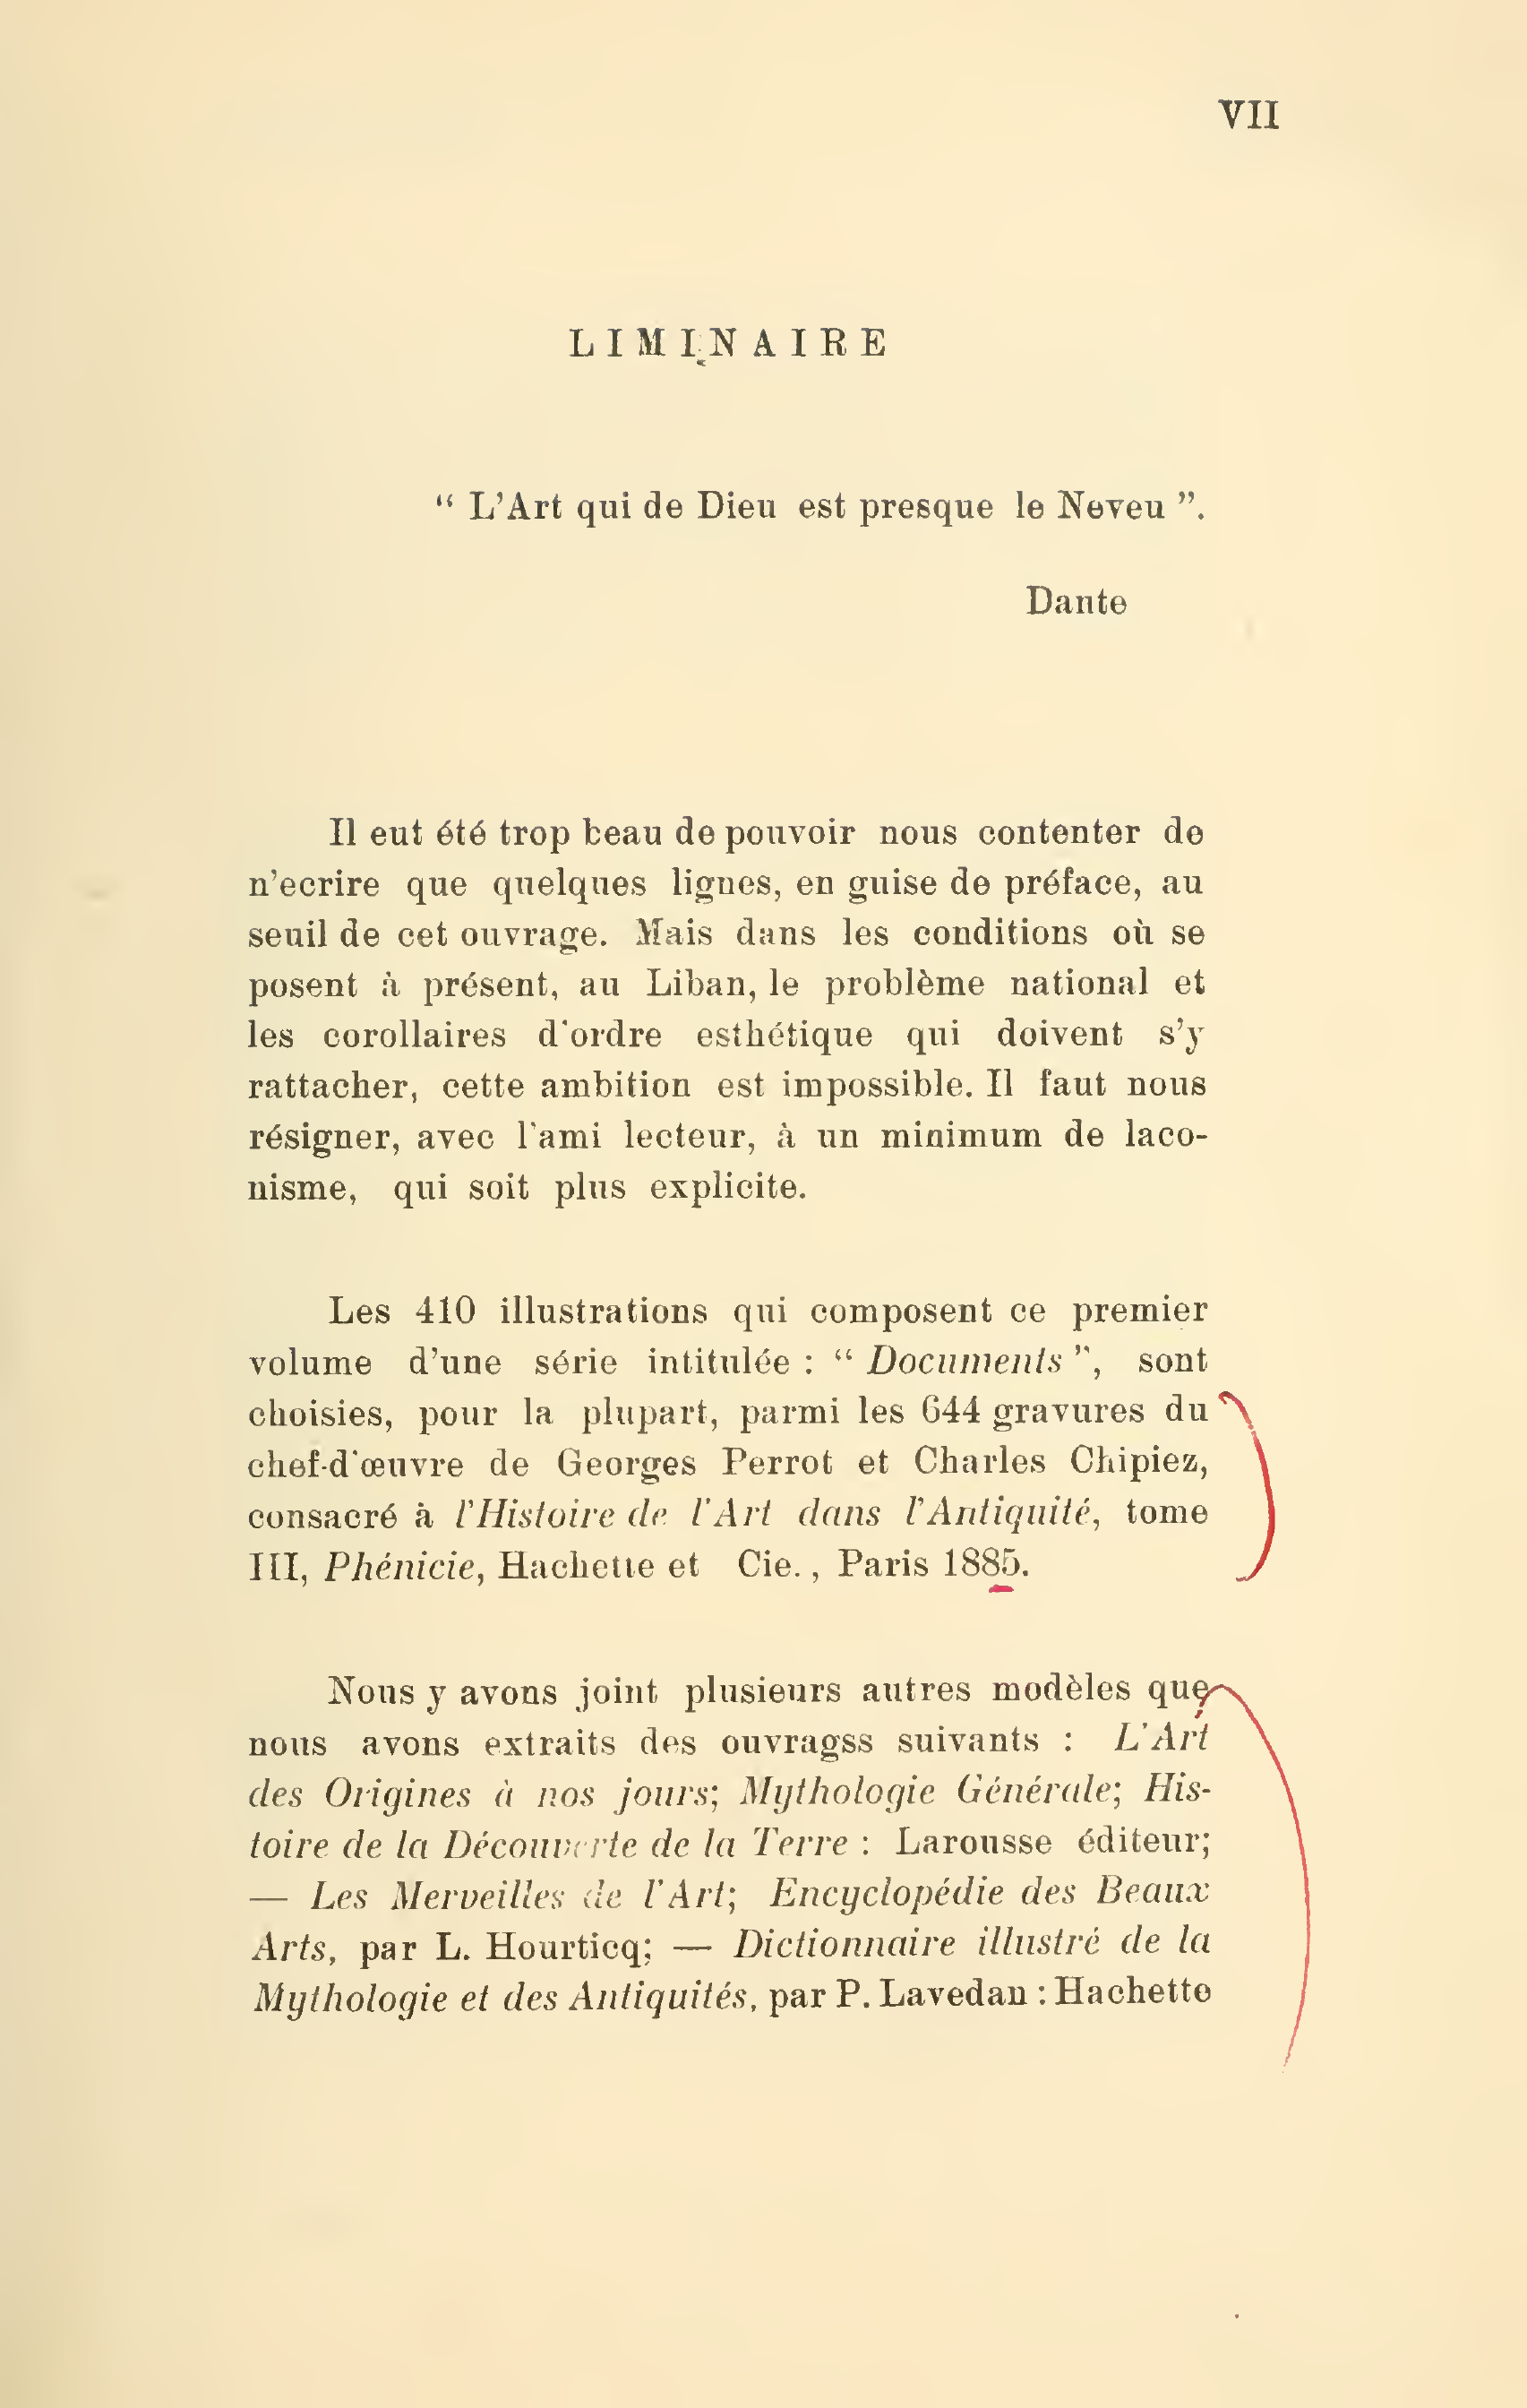 VII
LIMINAIRE
“ L’Art qui de Dieu est presque le Neveu ”.
Dante
Il eut été trop beau de pouvoir nous contenter de
n’ecrire que quelques lignes, en guise de préface, au
seuil de cet ouvrage. Mais dans les conditions où se
posent à présent, au Liban, le problème national et
les corollaires d’ordre esthétique qui doivent s’y
rattacher, cette ambition est impossible. Il faut nous
résigner, avec l’ami lecteur, à un minimum de laco-
nisme, qui soit plus explicite.
Les 410 illustrations qui composent ce premier
volume d’une série intitulée : “ Documents ”, sont
choisies, pour la plupart, parmi les 644 gravures du
chef-d’œuvre de Georges Perrot et Charles Chipiez,
consacré à l’Histoire de l’Art dans l’Antiquité, tome
III, Phénicie, Hachette et Cie., Paris 1885.
Nous y avons joint plusieurs autres modèles que
nous avons extraits des ouvragss suivants : L’Art
des Origines à nos jours; Mythologie Générale; His-
toire de la Découverte de la Terre : Larousse éditeur;
— Les Merveilles de l’Art; Encyclopédie des Beaux
Arts, par L. Hourticq; — Dictionnaire illustré de la
Mythologie et des Antiquités, par P. Lavedan : Hachette